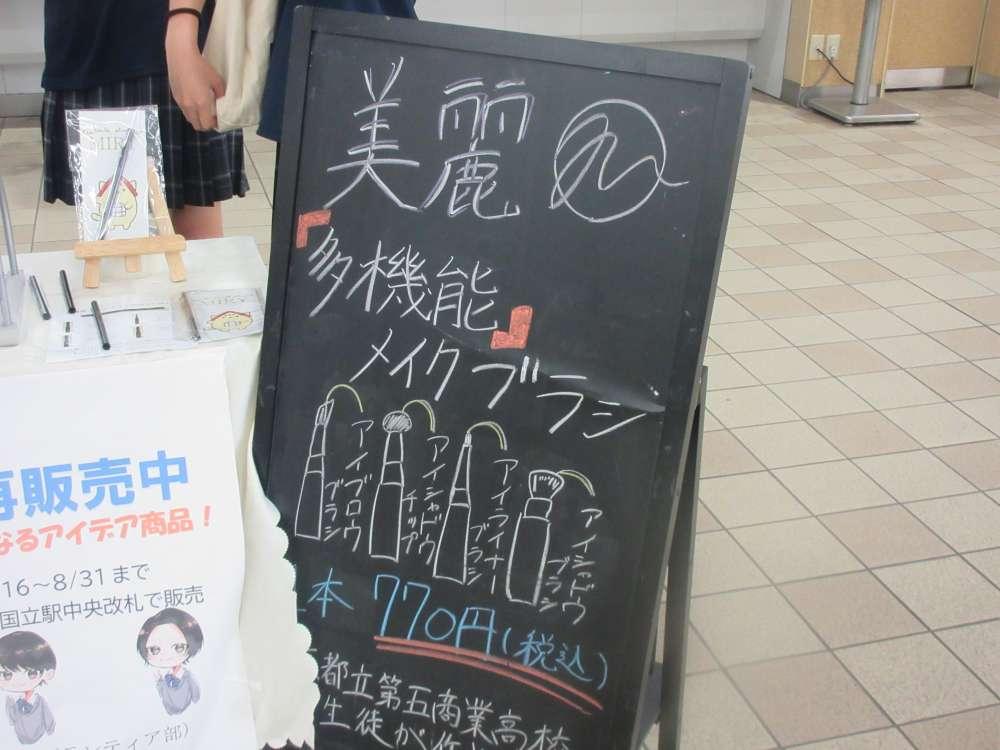 美麗
「多機能」
メイクブラシ
アイブロウ
ブラシ
アイシャドウ
チップ
アイライナー
ブラシ
アイシャドウ
ブラシ
本 770円(税込)
都立第五商業高校
生徒が作
MIRY
再販売中
なるアイデア商品!
16~8/31まで
国立駅中央改札で販売
ランティア部)